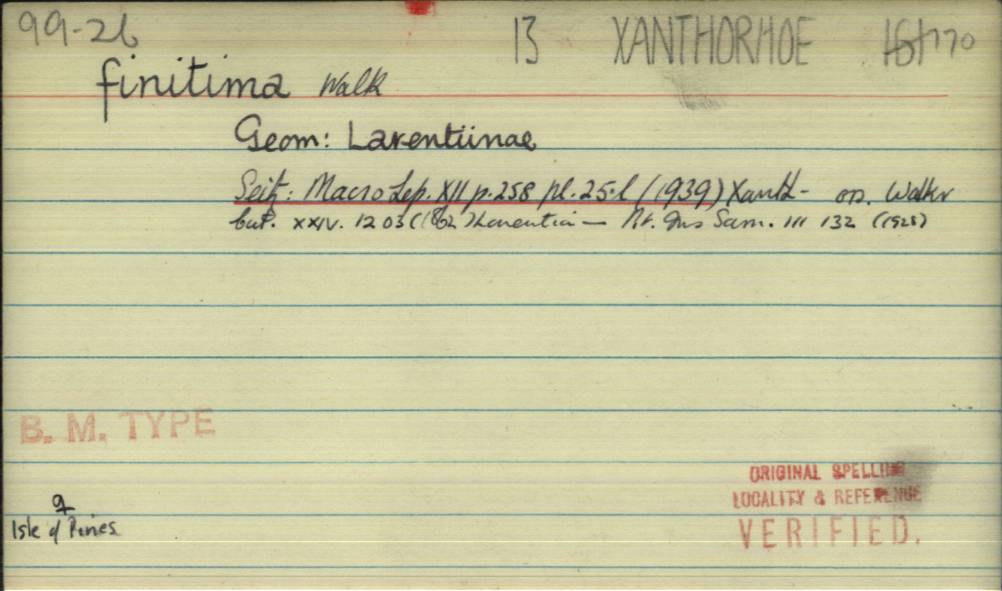 99-26 13 XANTHORHOE 170
finitima Walk
Geom: Larentiinae
Seitz: Macro Lep. XII p.258 pl.25.l (1939) Xanth- Walker
Cat. XXIV. 1203 (62) Larentia — Ins Sam. III 132 (1928)
B. M. TYPE
ORIGINAL SPELLING
LOCALITY & REFERENCE
VERIFIED.
♀
Isle of Pines